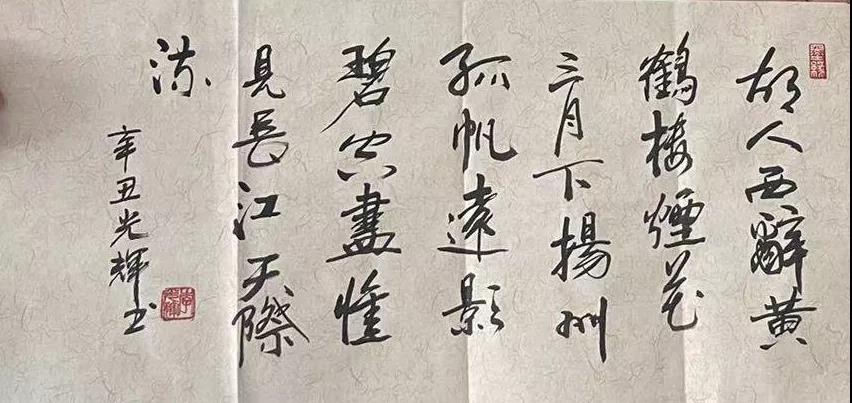 故人西辭黄
鶴楼煙花
三月下揚州
孤帆遠影
碧空盡惟
見長江天際
流
辛丑光輝书